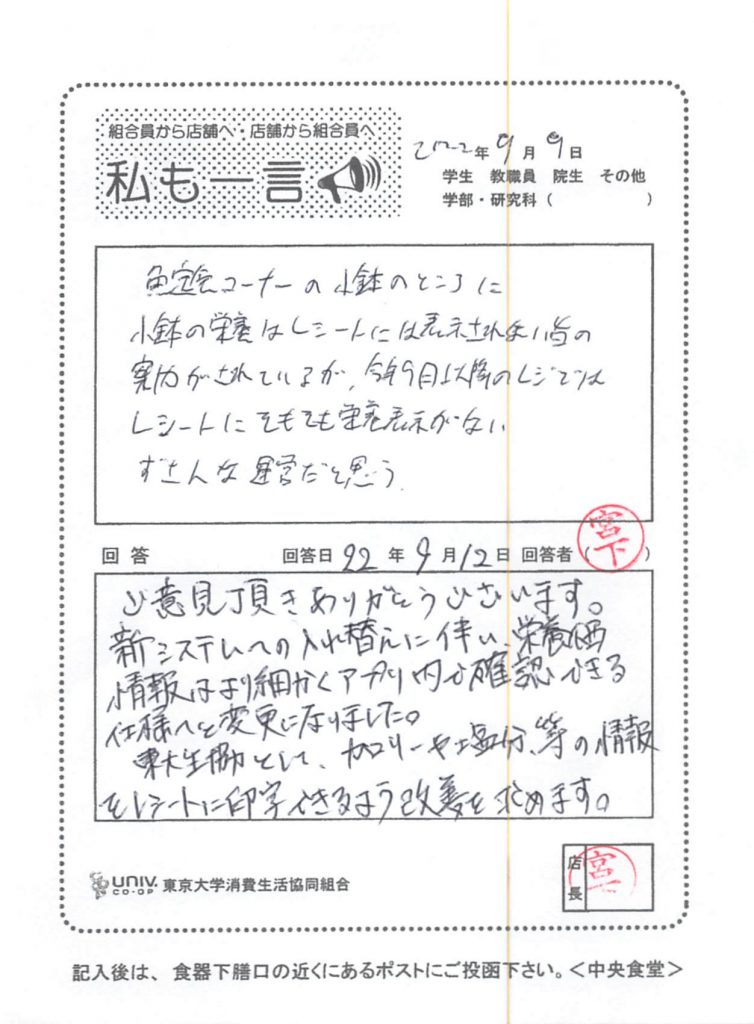 組合員から店舗へ・店舗から組合員へ
私も一言
2022年 9月 9日
学生 教職員 院生 その他
学部・研究科（ ）
魚定食コーナーの小鉢のところに
小鉢の栄養はレシートには表示されない旨の
がされているが、今年9月以降のレジでは
レシートにそもそも栄養表示がない
ずさんな運営だと思う
回答 回答日 22年 9月12日 回答者（宮下）
ご意見頂きありがとうございます。
新システムへの入れ替えに伴い、栄養価
情報はより細かくアプリ内で確認できる
仕様へと変更になりました。
東大生協として、カロリーや塩分、等の情報
をレシートに印字できるよう改善を求めます。
UNIV. CO-OP 東京大学消費生活協同組合
店長 宮下
記入後は、食器下膳口の近くにあるポストにご投函下さい。＜中央食堂＞